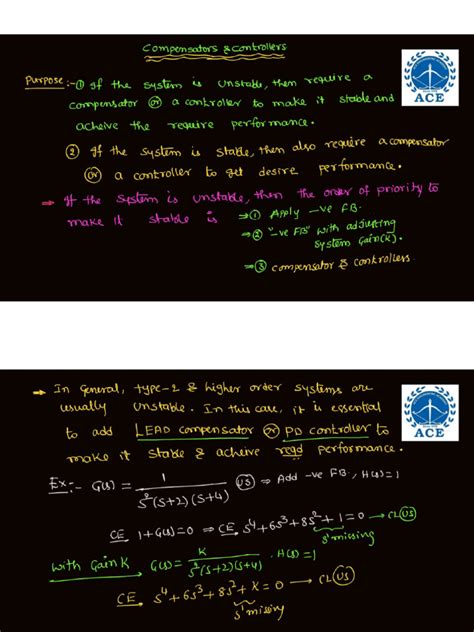 Compensators & Controllers
ACE
Purpose :- ① If the system is unstable, then require a
compensator (or) a controller to make it stable and
acheive the require performance.
② If the system is stable, then also require a compensator
(or) a controller to get desire performance.
→ If the system is unstable, then the order of priority to
make it stable is ⇒ ① Apply -ve FB.
→ ② "-ve FB" with adjusting
system Gain(K).
→ ③ compensator & controllers
→ In General, type-2 & higher order systems are
usually unstable. In this case, it is essential
to add LEAD compensator (or) PD controller to
make it stable & acheive reqd performance.
ACE
Ex:- G(s) = 1 / s²(s+2)(s+4) (US) ⇒ Add -ve FB., H(s)=1
CE 1+G(s)=0 ⇒ CE s⁴+6s³+8s²+1=0 → CL(US)
s¹ missing
With Gain K G(s) = K / s²(s+2)(s+4) . H(s)=1
CE s⁴+6s³+8s²+K=0 → CL(US)
s¹ missing